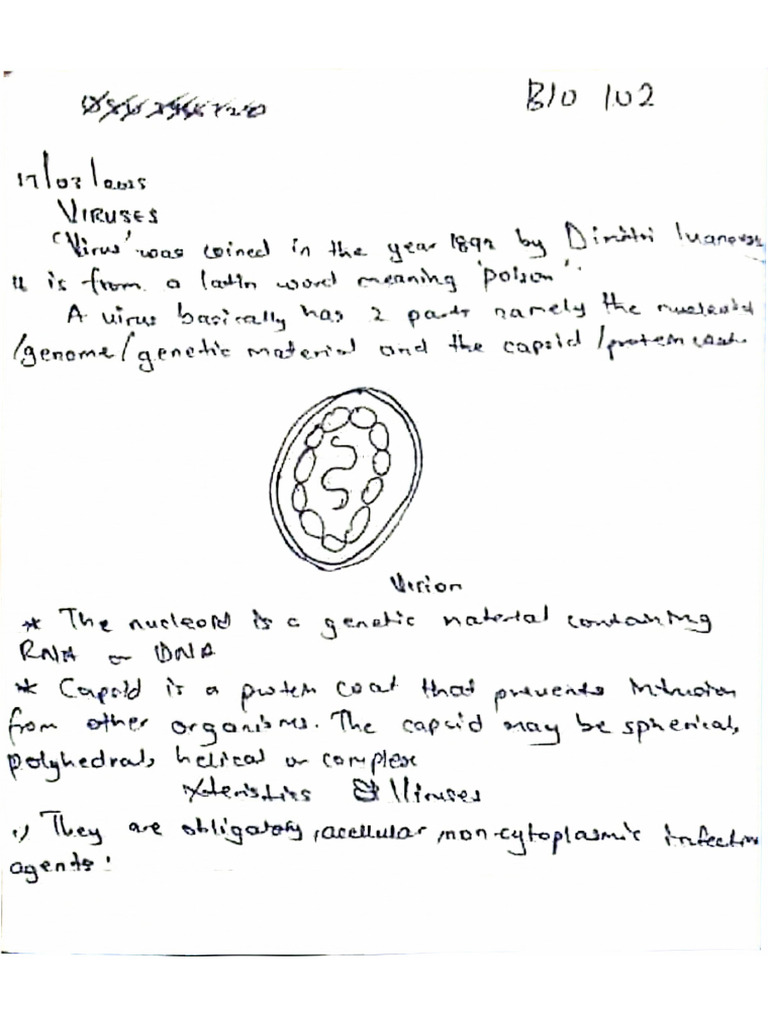 BIO 102
17/03/2025
VIRUSES
'Virus' was coined in the year 1892 by Dimitri Ivanovsk
It is from a latin word meaning 'poison'.
A virus basically has 2 parts namely the nucleoid
/genome/genetic material and the capsid/protein coat.
Virion
* The nucleoid is a genetic material containing
RNA or DNA
* Capsid is a protein coat that prevents intrusion
from other organisms. The capsid may be spherical,
polyhedral, helical or complex
Xteristics of Viruses
1) They are obligatory, acellular, non-cytoplasmic infective
agents.